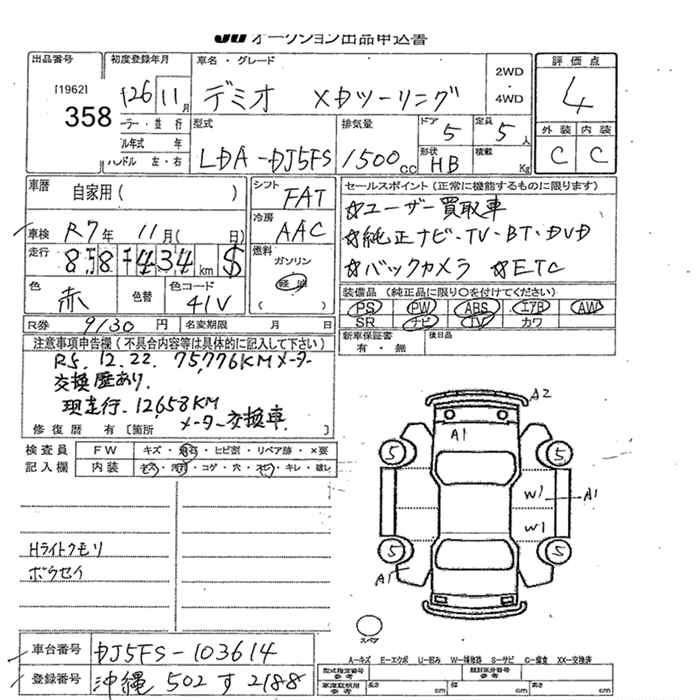 JU オークション出品申込書
出品番号
[1962]
358
初度登録年月
H26 11月
車名・グレード
デミオ XDツーリング
2WD・4WD
評価点
4
外装 内装
C C
年式
ハンドル 左・右
型式
LDA-DJ5FS
排気量
1500cc
ドア 5
定員 5人
形状 HB
積載 Kg
車歴 自家用( )
車検 R7年 11月( 日)
走行 8,8434km $
色 赤
色替
色コード 41V
シフト FAT
冷房 AAC
燃料
ガソリン
軽油
( )
セールスポイント(正常に機能するものに限ります)
☆ユーザー買取車
☆純正ナビ・TV・BT・DVD
☆バックカメラ ☆ETC
装備品(純正品に限り○を付けてください)
PS PW ABS エアB AW
SR ナビ TV カワ
新車保証書 有・無
後日品
R券 9130円
名変期限 月 日
注意事項申告欄(不具合内容等は具体的に記入して下さい)
R5.12.22. 75,776KMメーター
交換歴あり.
現走行.12,658KM
メーター交換車
修復歴 有〔箇所 〕
検査員記入欄
FW キズ・飛石・ヒビ割・リペア跡・×要
内装 キズ・汚れ・コゲ・穴・スレ・キレ・破レ
Hライトクモリ
ボウセイ
A2
A1
5 5
W1 A1
W1
5 5
A1
スペア
A-キズ E-エクボ U-凹み W-補修跡 S-サビ C-腐食 XX-交換済
車台番号 DJ5FS-103614
登録番号 沖縄 502 す 2188
型式指定番号 参考
類別区分番号 参考
車庫証明用 参考
長さ cm
幅 cm
高さ cm